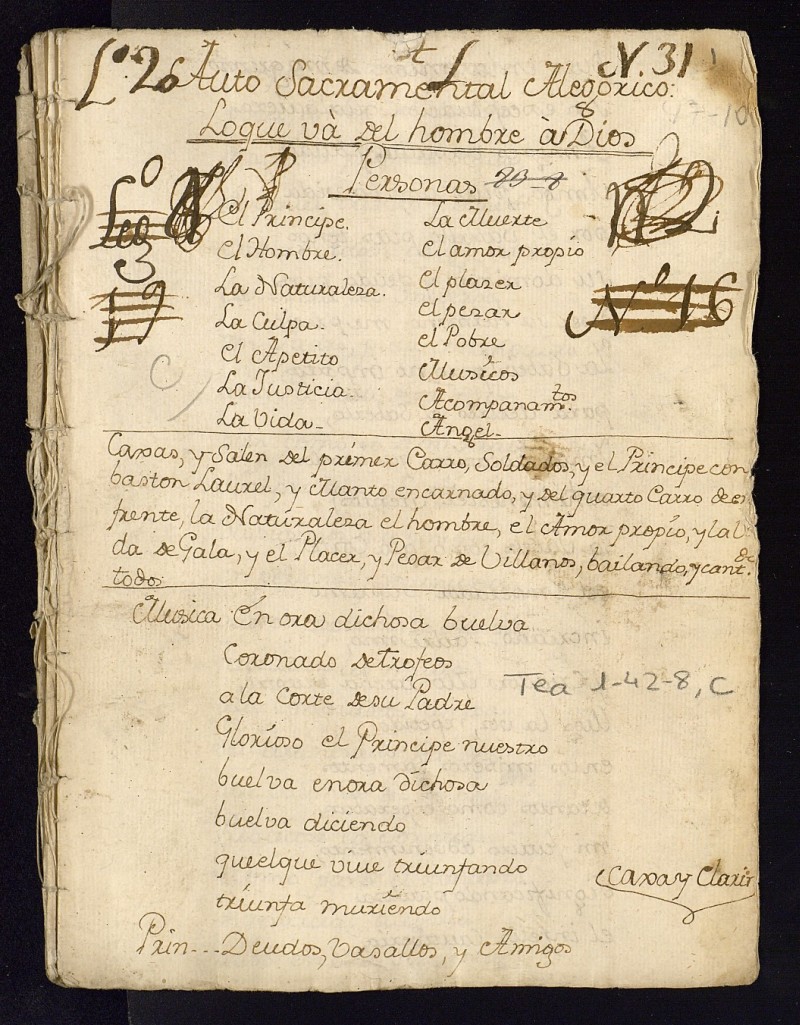 L.º 20 N. 31
Auto Sacramental Alegorico:
Loque và del hombre à Dios
Personas
El Principe.
el Hombre.
La Naturaleza.
La Culpa.
el Apetito
La Justicia.
La Vida-
La Muerte
el amor propio
el plazer
el pezar
el Pobre
Musicos
Acompanam.tos
Angel-
Leg.º
3
19
N.º 16
C
Caxas, y Salen del primer Carro, Soldados, y el Principe con
baston Laurel, y Manto encarnado, y del quarto Carro de en
frente, la Naturaleza el hombre, el Amor propio, y la Vi
da de Gala, y el Placer, y Pesar de Villanos, bailando, y cant.do
todos
Musica En ora dichosa buelva
Coronado de trofeos
a la Corte de su Padre
Glorioso el Principe nuestro
buelva enora dichosa
buelva diciendo
que el que vive triunfando
triunfa muriendo
Caxa y Clarin
Prin... Deudos, Vasallos, y Amigos
Tea 1-42-8, C